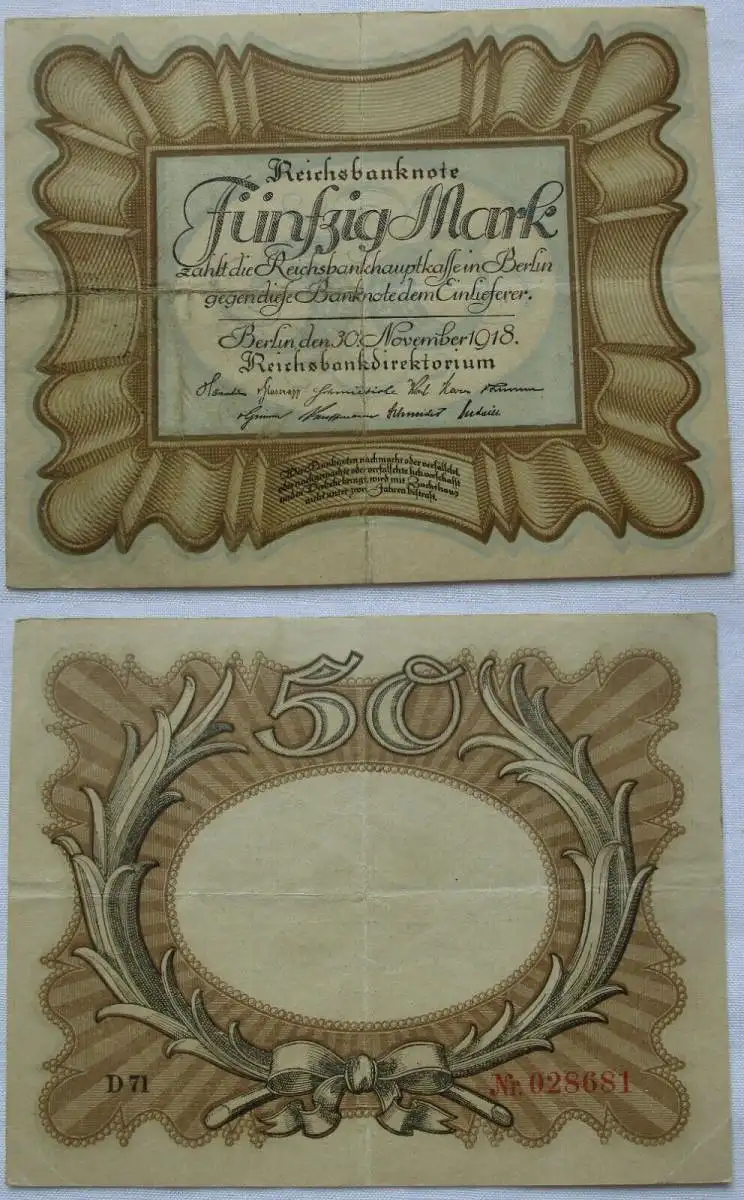 Reichsbanknote
Fünfzig Mark
zahlt die Reichsbankhauptkasse in Berlin
gegen diese Banknote dem Einlieferer.
Berlin, den 30. November 1918.
Reichsbankdirektorium
Schmiedicke Korn
v. Grimm Kauffmann Schneider
Wer Banknoten nachmacht oder verfälscht,
oder nachgemachte oder verfälschte sich verschafft
und in Verkehr bringt, wird mit Zuchthaus
nicht unter zwei Jahren bestraft.
50
D 71
Nr. 028681